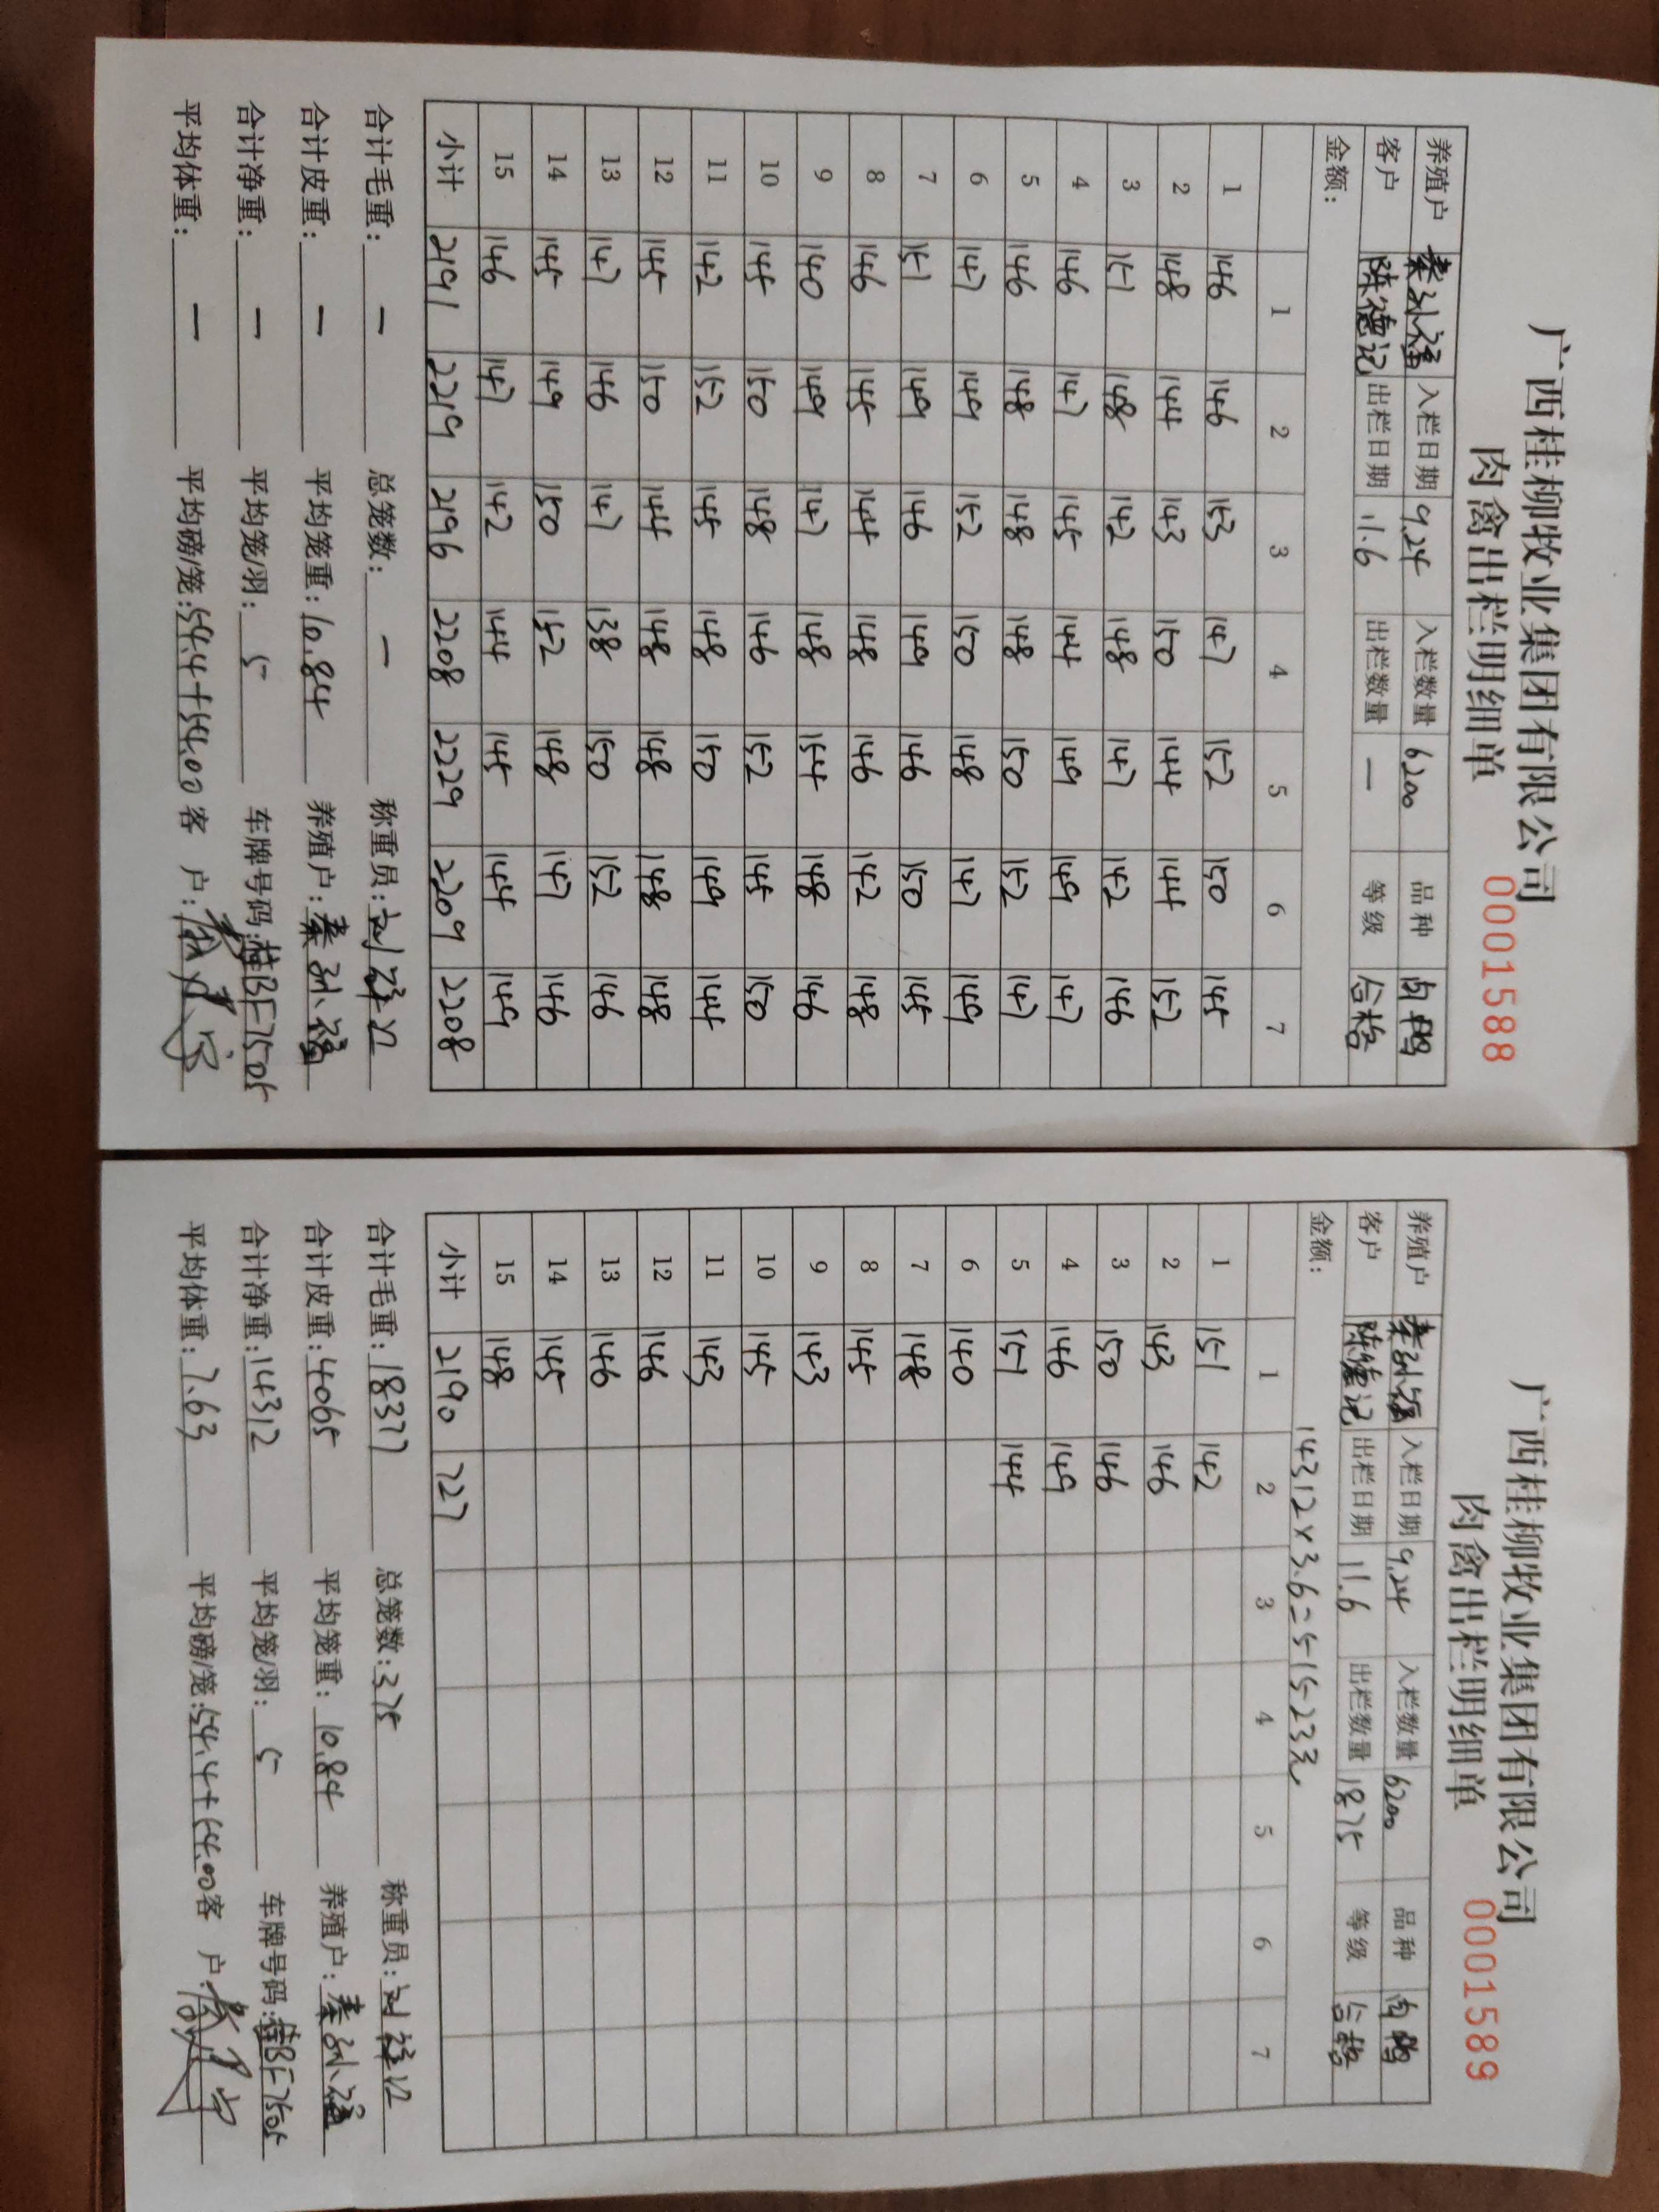 广西桂柳牧业集团有限公司
肉禽出栏明细单 0001588
养殖户 秦孙福 入栏日期 9.24 入栏数量 6200 品种 肉鸭
客户 陈德记 出栏日期 11.6 出栏数量 — 等级 合格
金额:
1 2 3 4 5 6 7
1 146 146 153 147 152 150 145
2 148 144 143 150 144 144 152
3 151 148 142 148 147 142 146
4 146 147 145 144 149 149 147
5 146 148 148 148 150 152 147
6 147 149 152 150 148 147 149
7 151 149 146 149 146 150 145
8 146 145 144 148 146 142 148
9 140 149 147 148 154 148 146
10 145 150 148 146 152 145 150
11 142 152 145 148 150 149 144
12 145 150 144 148 148 148 148
13 147 146 147 138 150 152 146
14 145 149 150 152 148 147 146
15 146 147 142 144 145 144 149
小计 2191 2219 2196 2208 2229 2209 2208
合计毛重: — 总笼数: — 称重员:
合计皮重: — 平均笼重: 10.84 养殖户: 秦孙福
合计净重: — 平均笼/羽: 5 车牌号码: 桂BF7505
平均体重: — 平均磅/笼: 54.4+54.00 客 户:
广西桂柳牧业集团有限公司
肉禽出栏明细单 0001589
养殖户 秦孙福 入栏日期 9.24 入栏数量 6200 品种 肉鸭
客户 陈德记 出栏日期 11.6 出栏数量 1875 等级 合格
金额: 14312×3.6=51523元
1 2 3 4 5 6 7
1 151 142
2 143 146
3 150 146
4 146 149
5 151 144
6 140
7 148
8 145
9 143
10 145
11 143
12 146
13 146
14 145
15 148
小计 2190 727
合计毛重: 18377 总笼数: 375 称重员:
合计皮重: 4065 平均笼重: 10.84 养殖户: 秦孙福
合计净重: 14312 平均笼/羽: 5 车牌号码: 桂BF7505
平均体重: 7.63 平均磅/笼: 54.4+54.00 客 户: